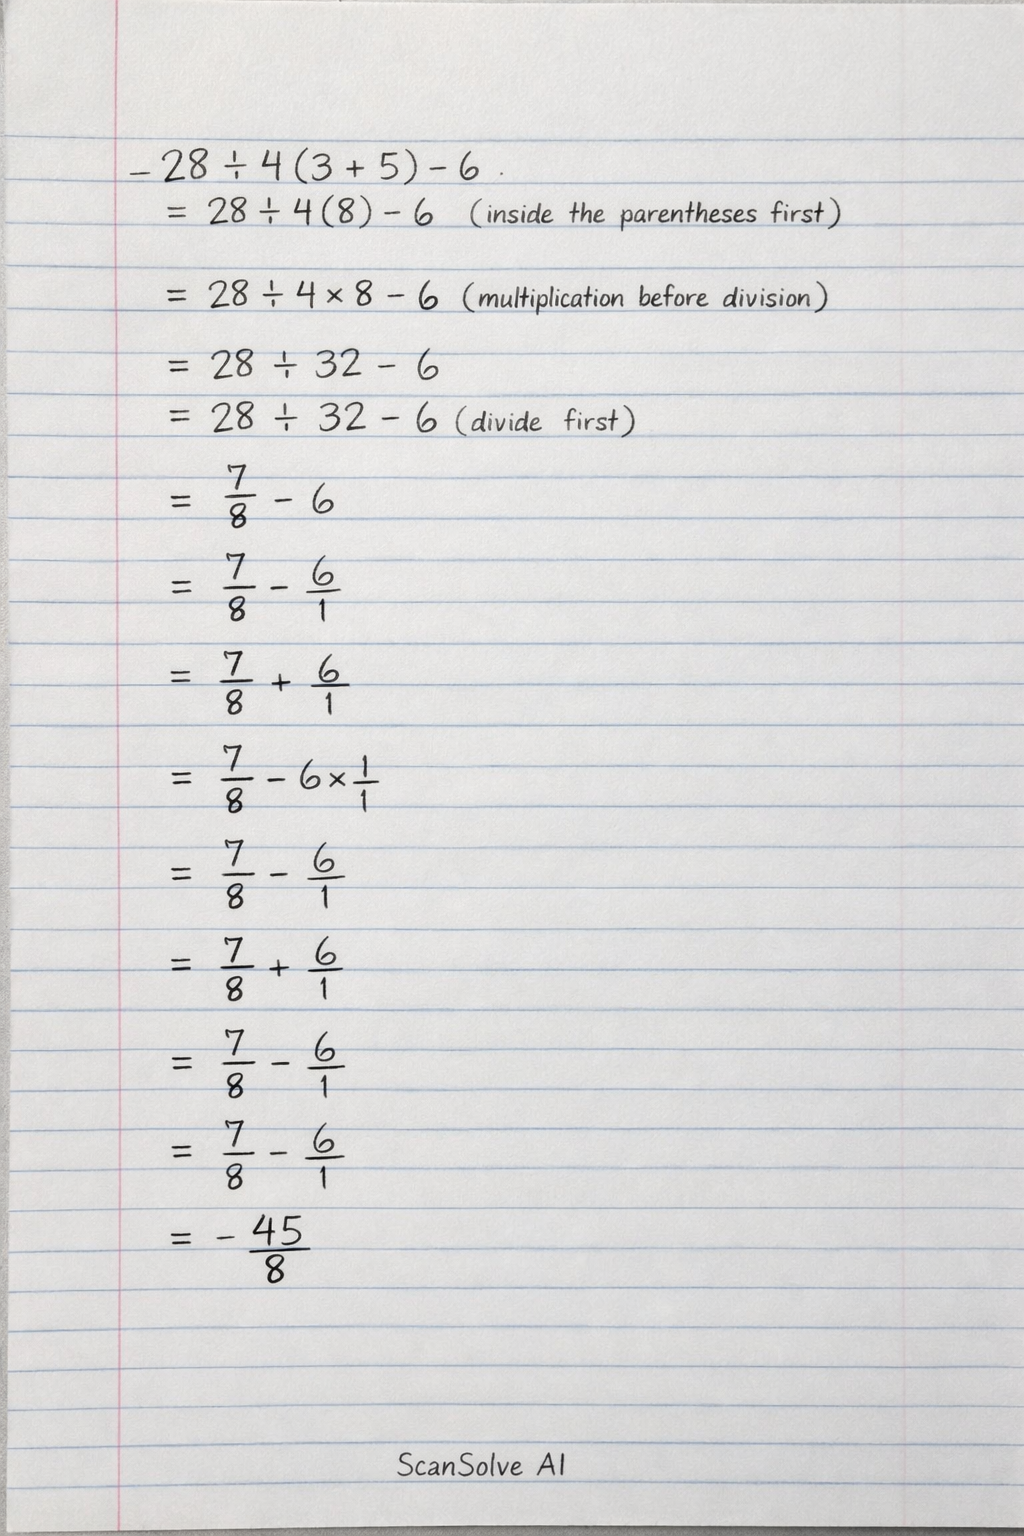 – 28 ÷ 4 (3 + 5) – 6 .
= 28 ÷ 4 (8) – 6 (inside the parentheses first)
= 28 ÷ 4 × 8 – 6 (multiplication before division)
= 28 ÷ 32 – 6
= 28 ÷ 32 – 6 (divide first)
= 7/8 – 6
= 7/8 – 6/1
= 7/8 + 6/1
= 7/8 – 6 × 1/1
= 7/8 – 6/1
= 7/8 + 6/1
= 7/8 – 6/1
= 7/8 – 6/1
= – 45/8
ScanSolve AI